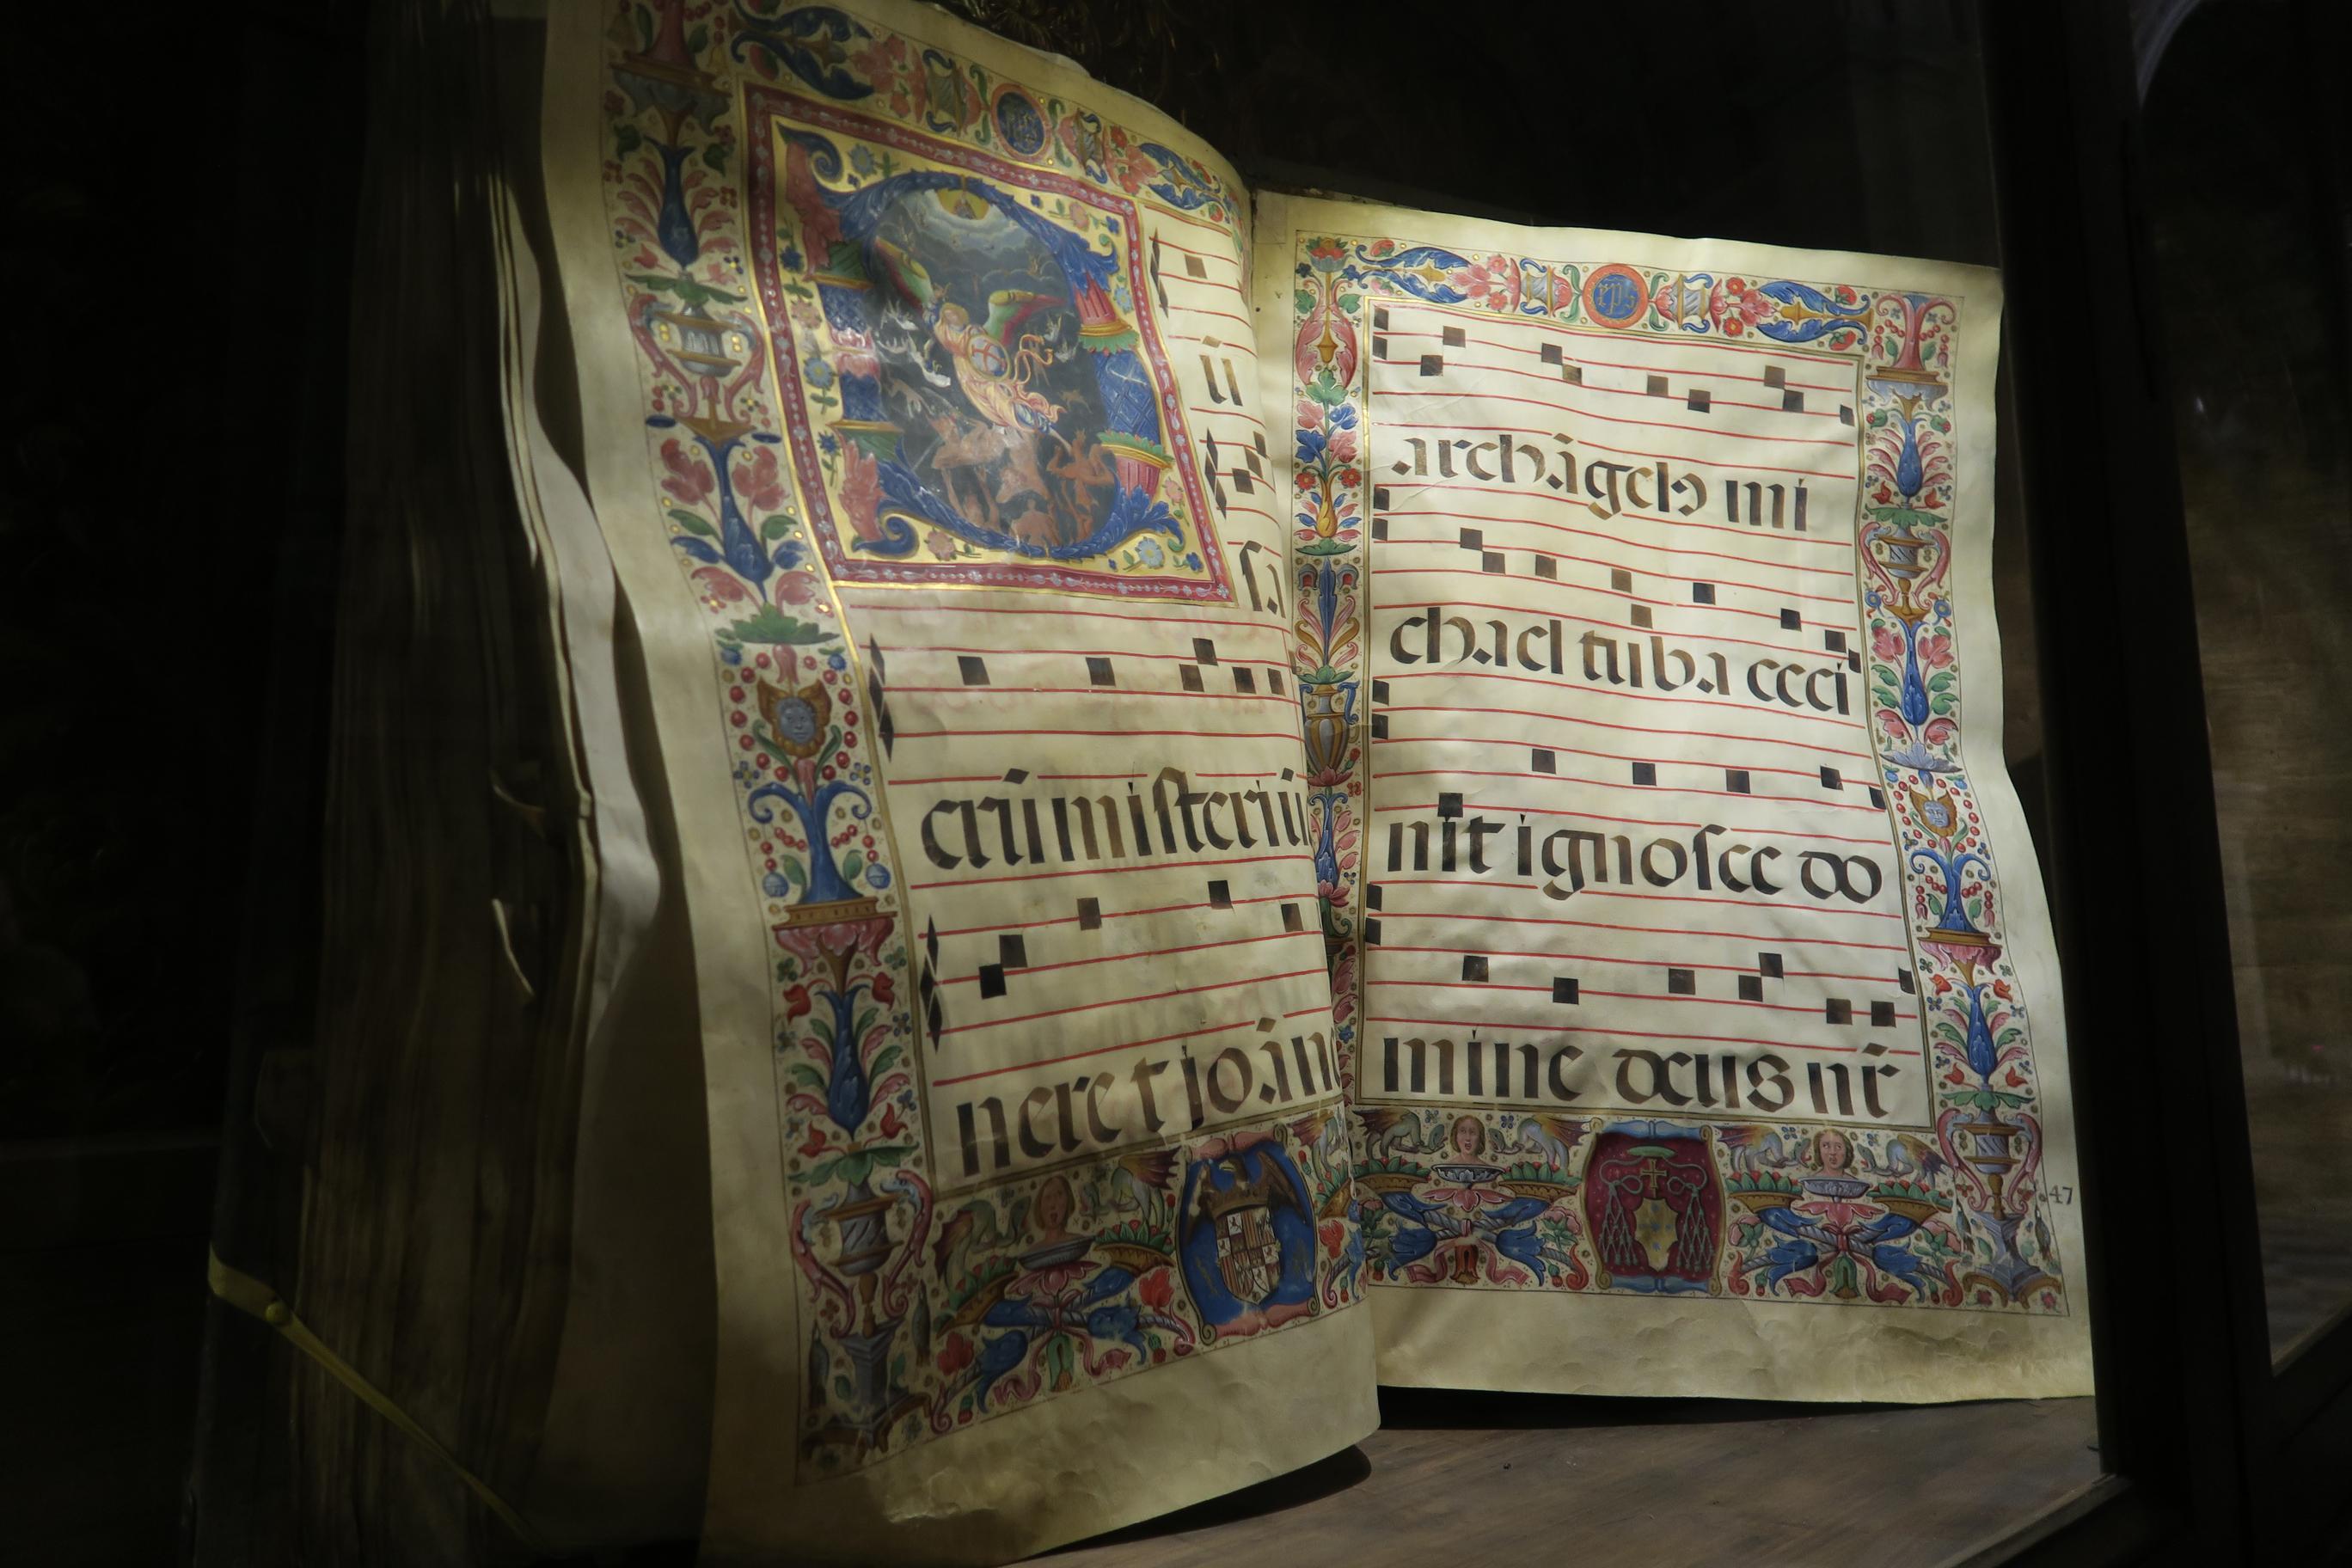 ū
sa
crū misterium
nere t joān
archāgelo mi
chael tuba ceci
nit ignosce do
mine deus nr̄
47